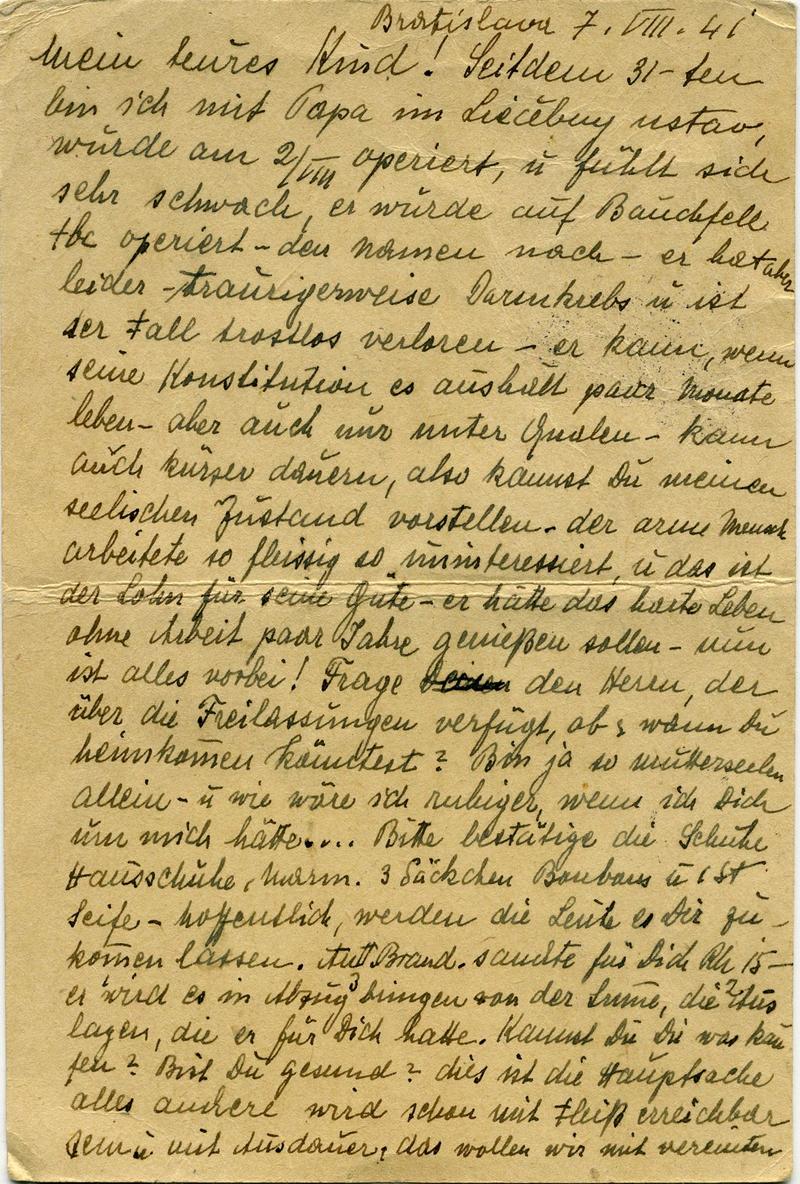 Bratislava 7. VIII. 41
Mein teures Kind! Seitdem 31-ten
bin ich mit Papa im Liečebny ustav,
wurde am 2/VIII operiert, u fühlt sich
sehr schwach, er wurde auf Bauchfell
tbc operiert - den Namen nach - er hat aber
leider - traurigerweise Darmkrebs u ist
der Fall trostlos verloren - er kann, wenn
seine Konstitution es aushält paar Monate
leben - aber auch nur unter Qualen - kann
auch kürzer dauern, also kannst Du meinen
seelischen Zustand vorstellen - der arme Mensch
arbeitete so fleissig so uninteressiert, u das ist
der Lohn für seine Güte - er hätte das harte Leben
ohne Arbeit paar Jahre genießen sollen - nun
ist alles vorbei! Frage den Herrn, der
über die Freilassungen verfügt, ob & wann Du
heimkomen könntest? Bin ja so mutterseelen
allein - u wie wäre ich ruhiger, wenn ich Dich
um mich hätte.... Bitte bestätige die Schuhe
Hausschuhe, Marm. 3 Säckchen Bonbons u 1 St
Seife - hoffentlich, werden die Leute es Dir zu-
komen lassen. Brand. sandte für Dich 15 -
er wird es in Abzug bringen von der Sume, die Aus
lagen, die er für Dich hatte. Kannst Du Dir was kau
fen? Bist Du gesund? dies ist die Hauptsache
alles andere wird schon mit Fleiß erreichbar
sein u mit Ausdauer, das wollen wir mit vereinten